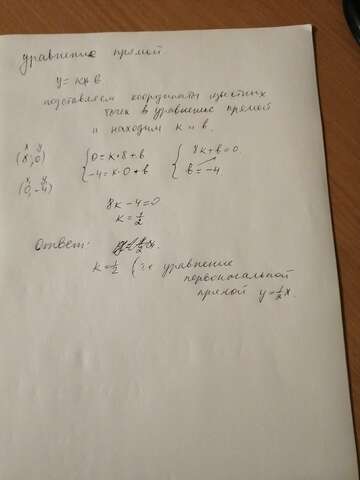 уравнение прямой
y = kx+b
подставляем координаты известных
точек в уравнение прямой
и находим k и b.
x y
(8,0)
{0=k·8+b {8k+b=0
{-4=k·0+b {b=-4
x y
(0,-4)
8k-4=0
k=1/2
Ответ:
k=1/2 (т.е уравнение
первоначальной
прямой y=1/2x